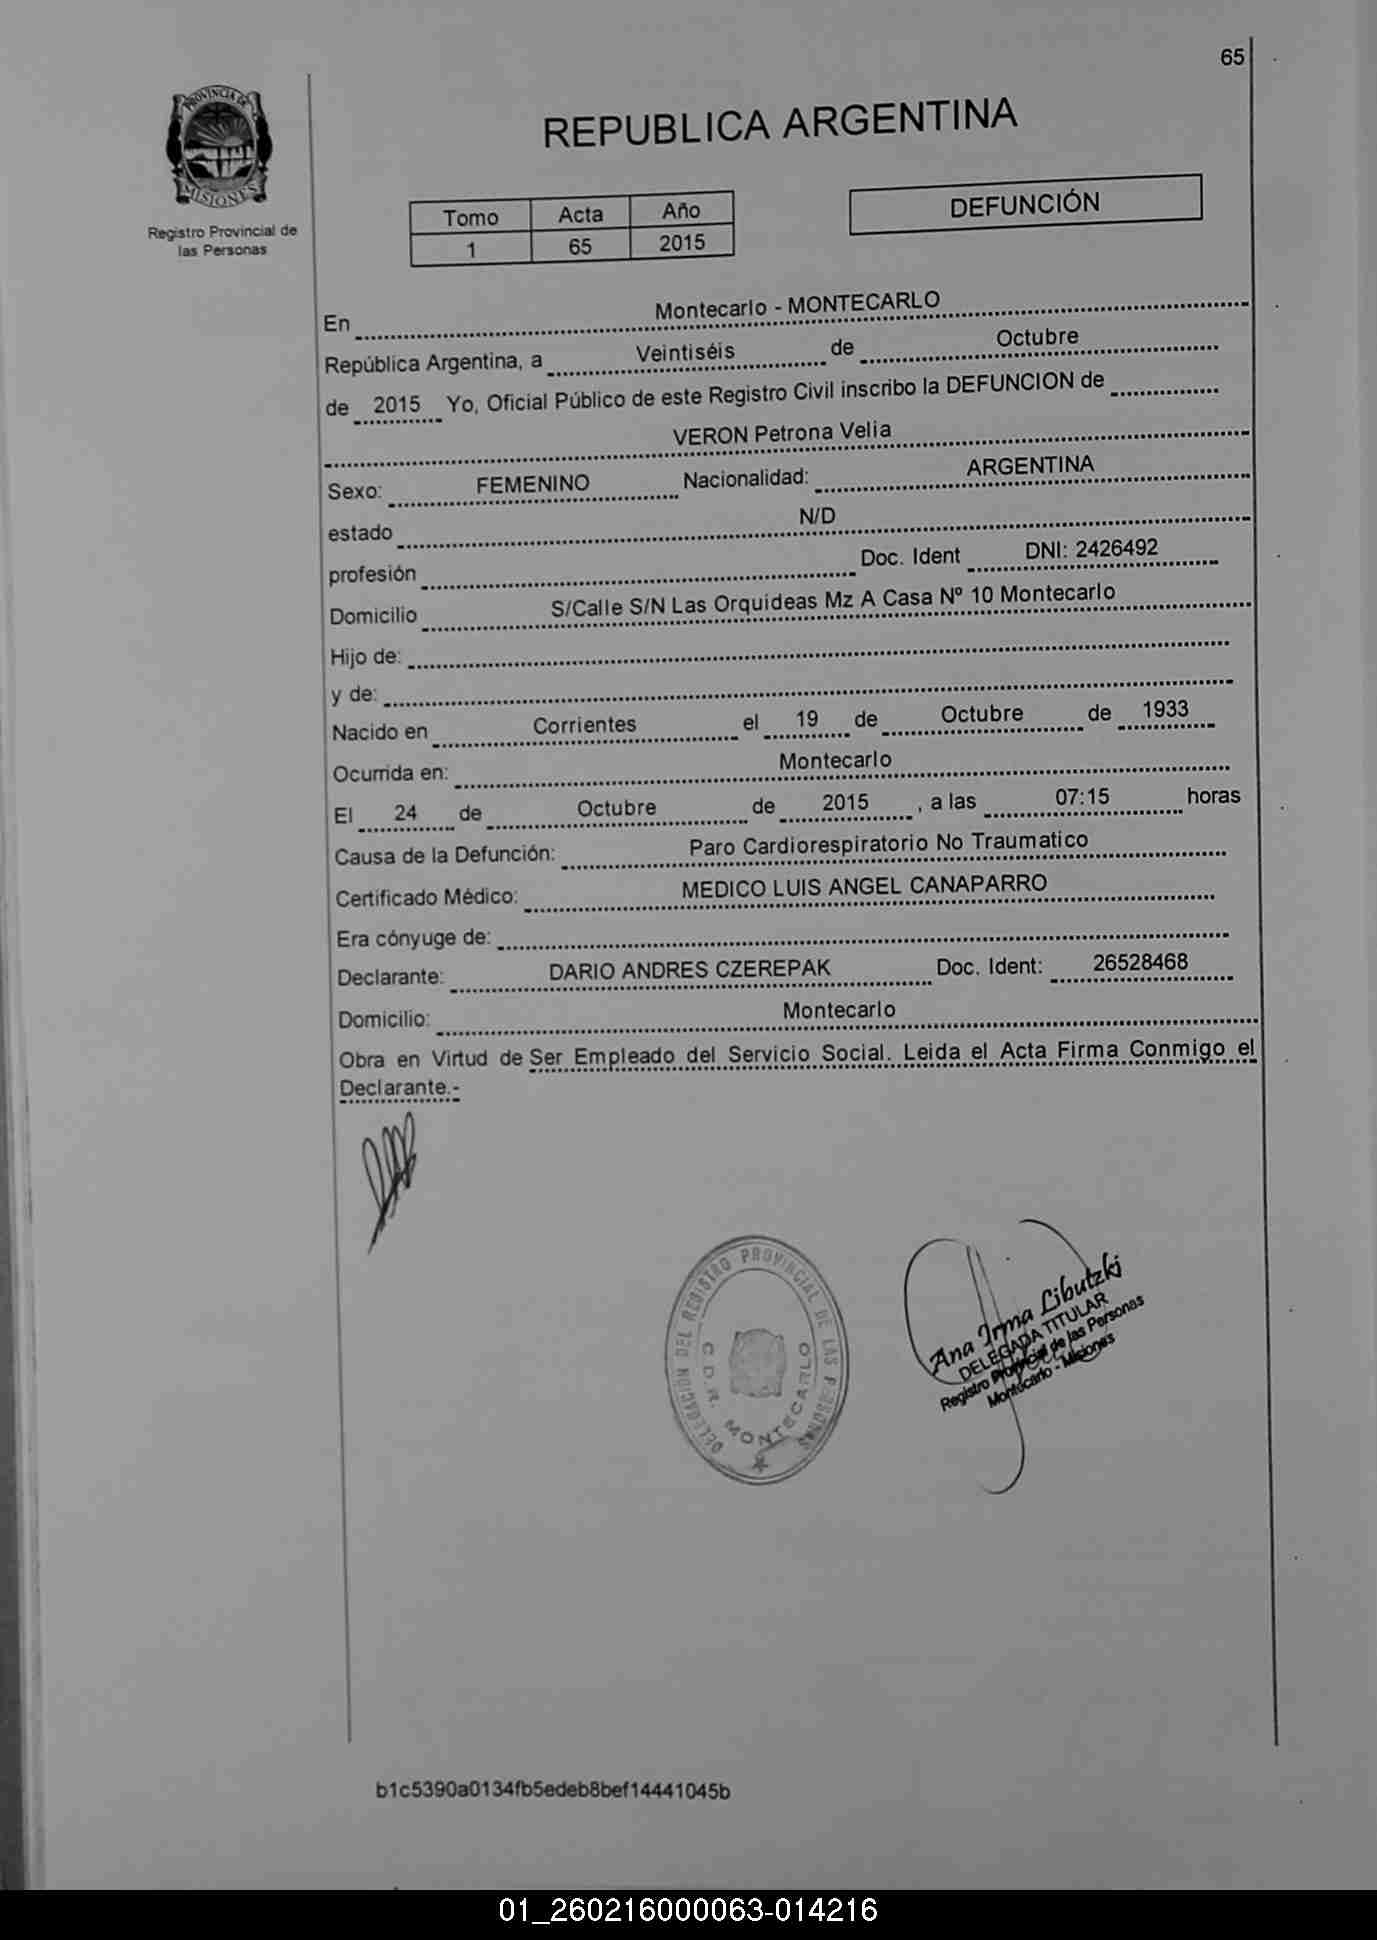 65
PROVINCIA DE
MISIONES
Registro Provincial de
las Personas
REPUBLICA ARGENTINA
Tomo Acta Año
1 65 2015
DEFUNCIÓN
En Montecarlo - MONTECARLO
República Argentina, a Veintiséis de Octubre
de 2015 Yo, Oficial Público de este Registro Civil inscribo la DEFUNCION de
VERON Petrona Velia
Sexo: FEMENINO Nacionalidad: ARGENTINA
estado N/D
profesión Doc. Ident DNI: 2426492
Domicilio S/Calle S/N Las Orquideas Mz A Casa Nº 10 Montecarlo
Hijo de:
y de:
Nacido en Corrientes el 19 de Octubre de 1933
Ocurrida en: Montecarlo
El 24 de Octubre de 2015 , a las 07:15 horas
Causa de la Defunción: Paro Cardiorespiratorio No Traumatico
Certificado Médico: MEDICO LUIS ANGEL CANAPARRO
Era cónyuge de:
Declarante: DARIO ANDRES CZEREPAK Doc. Ident: 26528468
Domicilio: Montecarlo
Obra en Virtud de Ser Empleado del Servicio Social. Leida el Acta Firma Conmigo el
Declarante.-
DELEGACION DEL REGISTRO PROVINCIAL DE LAS PERSONAS
C.D.R. MONTECARLO
Ana Irma Libutzki
DELEGADA TITULAR
Registro Provincial de las Personas
Montecarlo - Misiones
b1c5390a0134fb5edeb8bef14441045b
01_260216000063-014216